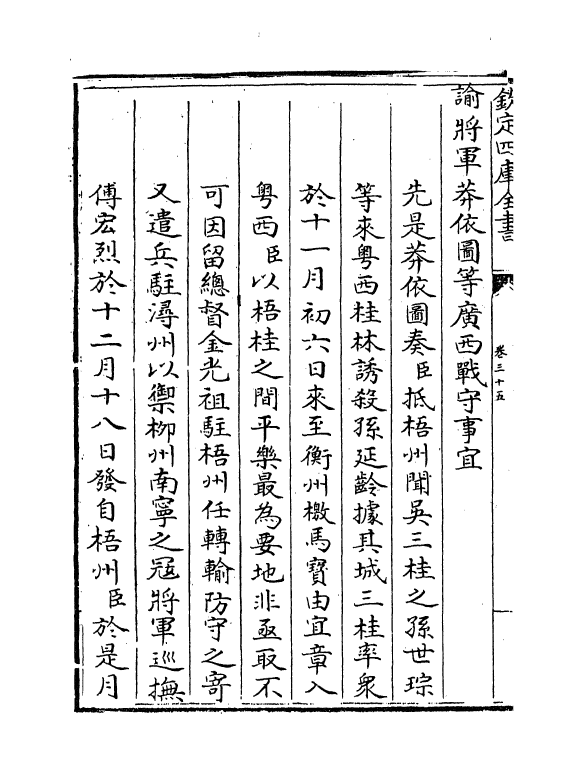 欽定四庫全書
卷三十五
諭將軍莽依圖等廣西戰守事宜
先是莽依圖奏臣抵梧州聞吳三桂之孫世琮
等來粵西桂林誘殺孫延齡據其城三桂率衆
於十一月初六日來至衡州檄馬寶由宜章入
粵西臣以梧桂之間平樂最為要地非亟取不
可因留總督金光祖駐梧州任轉輸防守之寄
又遣兵駐潯州以禦柳州南寧之冦將軍巡撫
傅宏烈於十二月十八日發自梧州臣於是月